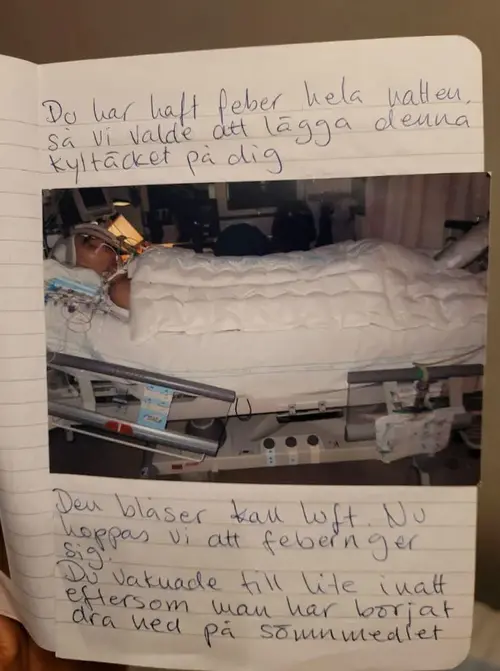 Du har haft feber hela natten,
så vi valde att lägga denna
kyltäcket på dig
Den blåser kall luft. Nu
hoppas vi att febern ger
sig.
Du vaknade till lite inatt
eftersom man har börjat
dra ned på sömnmedlet